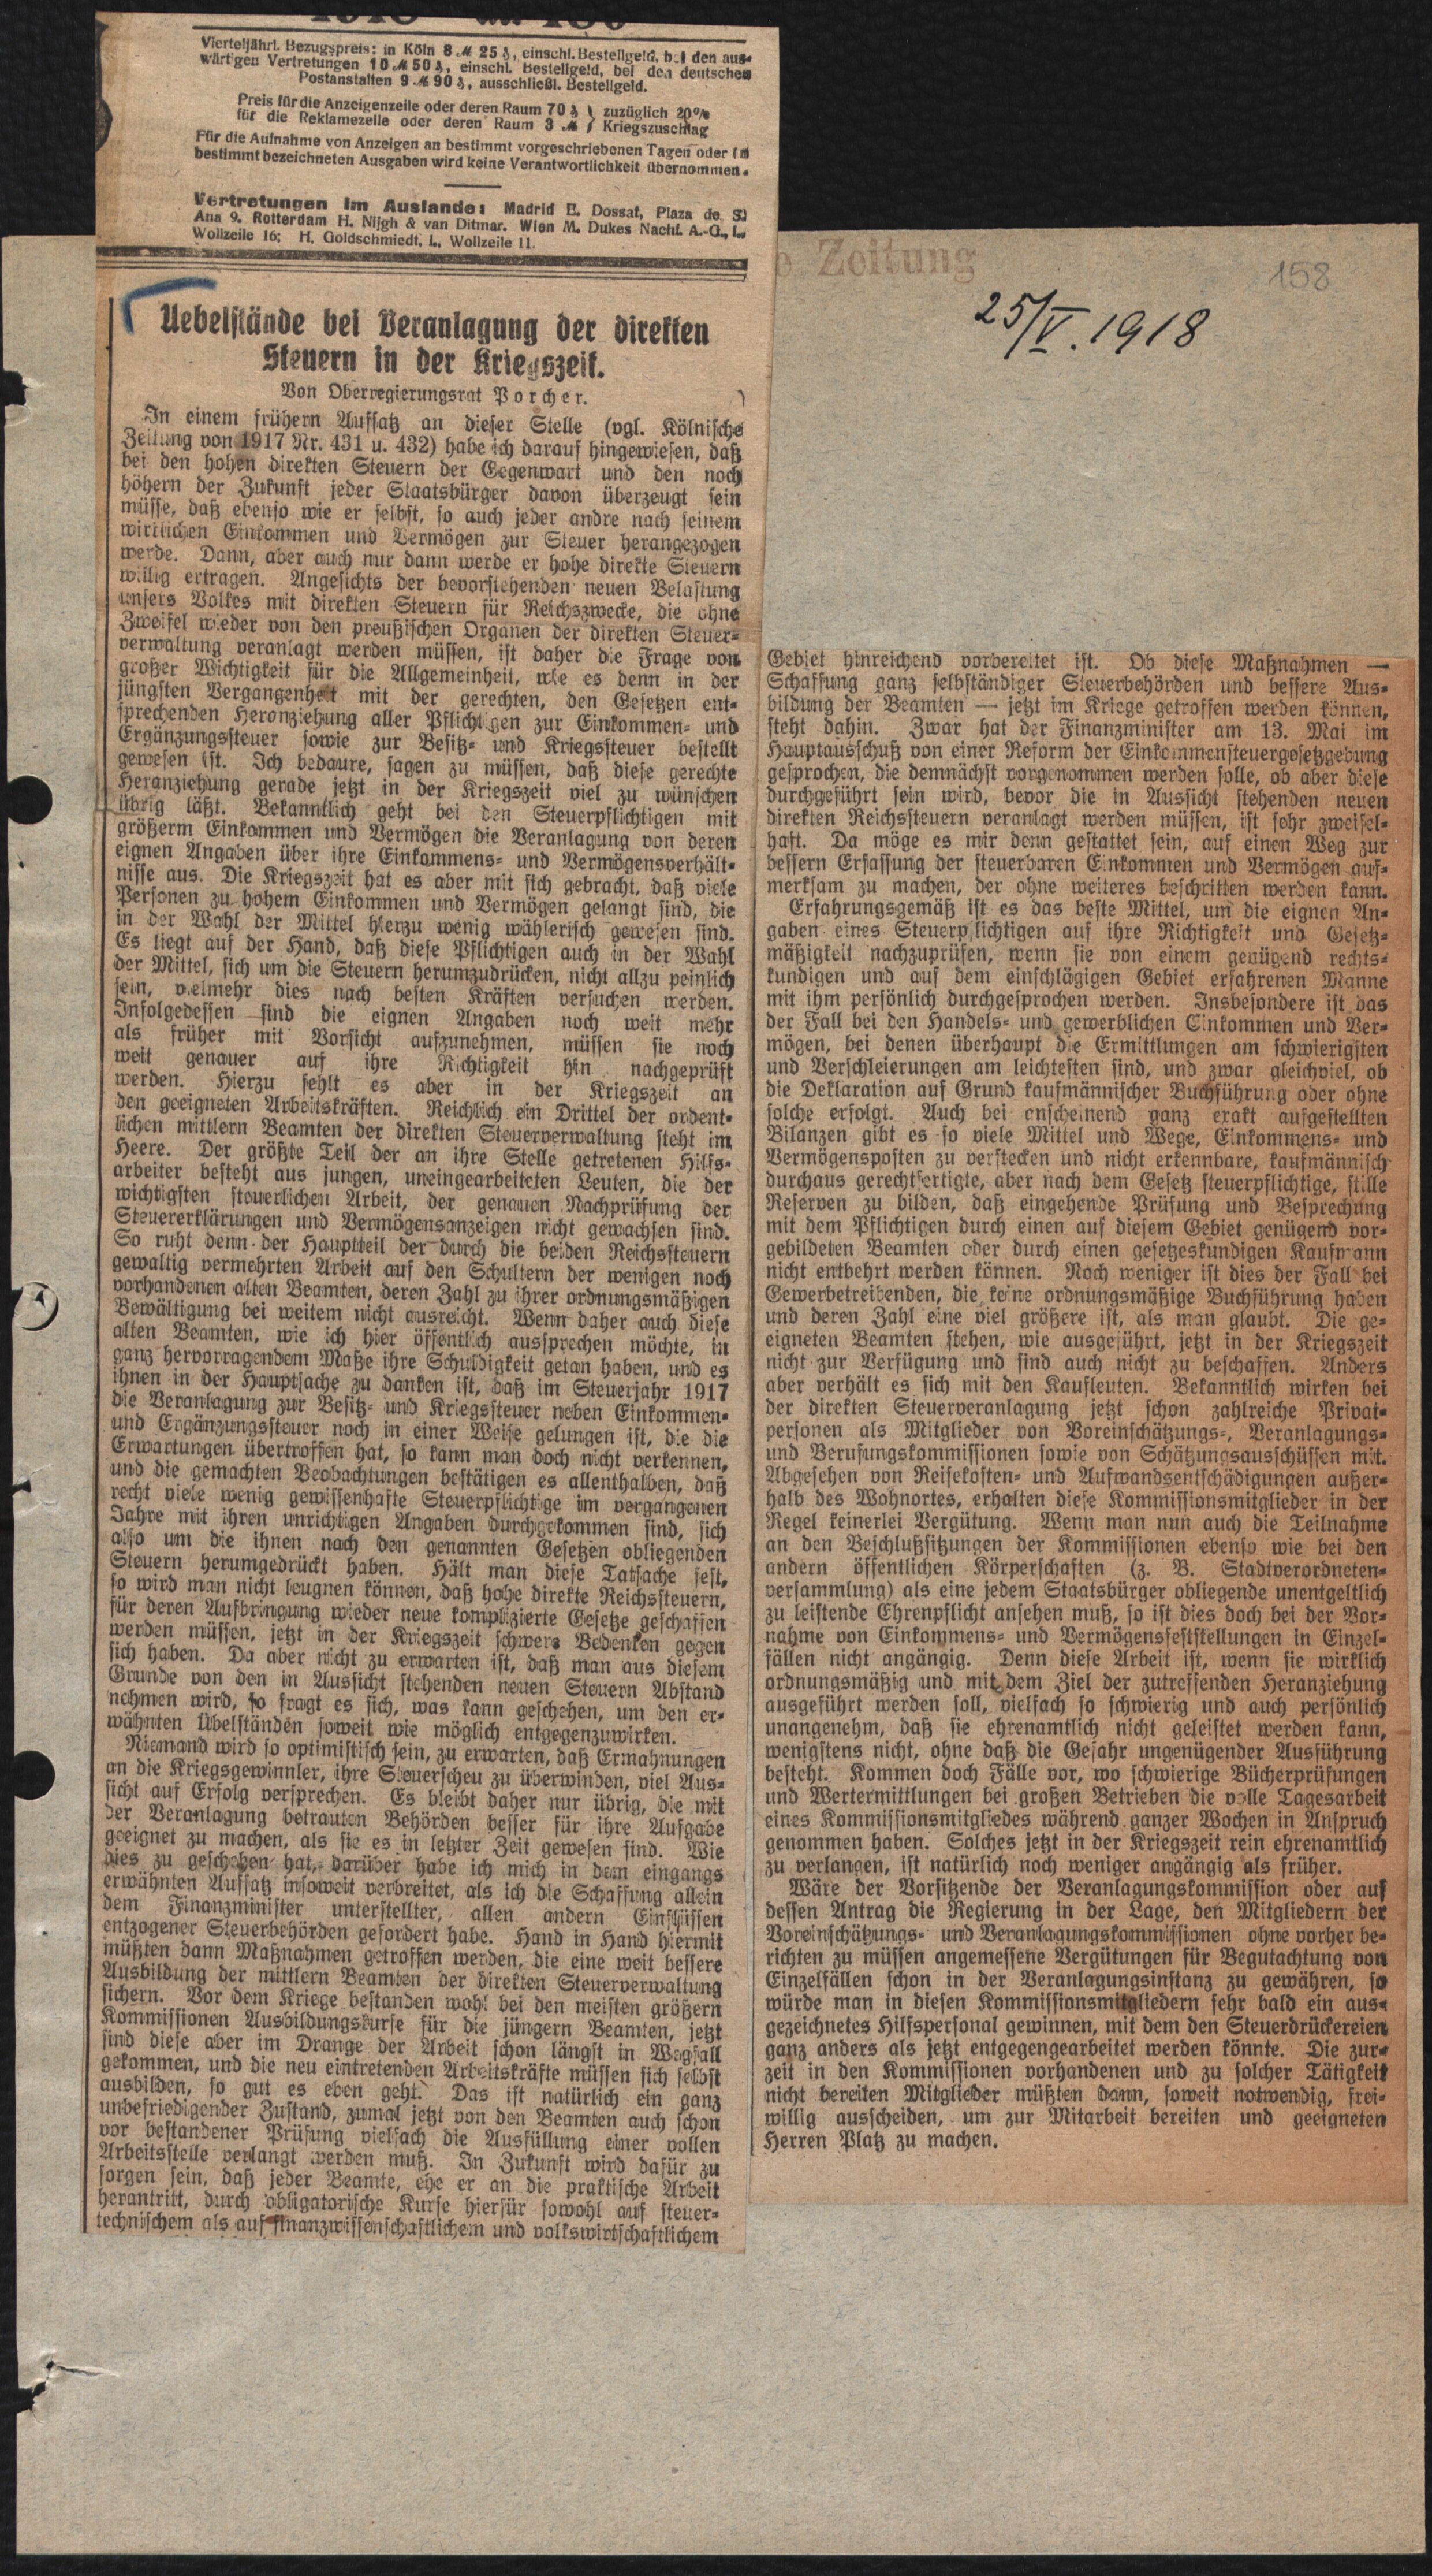 Vierteljährl. Bezugspreis: in Köln 8 ℳ 25 ₰, einschl. Bestellgeld, bei den aus-
wärtigen Vertretungen 10 ℳ 50 ₰, einschl. Bestellgeld, bei den deutschen
Postanstalten 9 ℳ 90 ₰, ausschließl. Bestellgeld.
Preis für die Anzeigenzeile oder deren Raum 70 ₰ } zuzüglich 20%
für die Reklamezeile oder deren Raum 3 ℳ } Kriegszuschlag
Für die Aufnahme von Anzeigen an bestimmt vorgeschriebenen Tagen oder in
bestimmt bezeichneten Ausgaben wird keine Verantwortlichkeit übernommen.
Vertretungen im Auslande: Madrid E. Dossat, Plaza de S.
Ana 9. Rotterdam H. Nijgh & van Ditmar. Wien M. Dukes Nachf. A.-G., I.,
Wollzeile 16; H. Goldschmiedt, I., Wollzeile 11.
Zeitung
158
25/V. 1918
Uebelstände bei Veranlagung der direkten
Steuern in der Kriegszeit.
Von Oberregierungsrat Porcher.
In einem frühern Aufsatz an dieser Stelle (vgl. Kölnische
Zeitung von 1917 Nr. 431 u. 432) habe ich darauf hingewiesen, daß
bei den hohen direkten Steuern der Gegenwart und den noch
höhern der Zukunft jeder Staatsbürger davon überzeugt sein
müsse, daß ebenso wie er selbst, so auch jeder andre nach seinem
wirklichen Einkommen und Vermögen zur Steuer herangezogen
werde. Dann, aber auch nur dann werde er hohe direkte Steuern
willig ertragen. Angesichts der bevorstehenden neuen Belastung
unsers Volkes mit direkten Steuern für Reichszwecke, die ohne
Zweifel wieder von den preußischen Organen der direkten Steuer-
verwaltung veranlagt werden müssen, ist daher die Frage von
großer Wichtigkeit für die Allgemeinheit, wie es denn in der
jüngsten Vergangenheit mit der gerechten, den Gesetzen ent-
sprechenden Heranziehung aller Pflichtigen zur Einkommen- und
Ergänzungssteuer sowie zur Besitz- und Kriegssteuer bestellt
gewesen ist. Ich bedaure, sagen zu müssen, daß diese gerechte
Heranziehung gerade jetzt in der Kriegszeit viel zu wünschen
übrig läßt. Bekanntlich geht bei den Steuerpflichtigen mit
größerm Einkommen und Vermögen die Veranlagung von deren
eignen Angaben über ihre Einkommens- und Vermögensverhält-
nisse aus. Die Kriegszeit hat es aber mit sich gebracht, daß viele
Personen zu hohem Einkommen und Vermögen gelangt sind, die
in der Wahl der Mittel hierzu wenig wählerisch gewesen sind.
Es liegt auf der Hand, daß diese Pflichtigen auch in der Wahl
der Mittel, sich um die Steuern herumzudrücken, nicht allzu peinlich
sein, vielmehr dies nach besten Kräften versuchen werden.
Infolgedessen sind die eignen Angaben noch weit mehr
als früher mit Vorsicht aufzunehmen, müssen sie noch
weit genauer auf ihre Richtigkeit hin nachgeprüft
werden. Hierzu fehlt es aber in der Kriegszeit an
den geeigneten Arbeitskräften. Reichlich ein Drittel der ordent-
lichen mittlern Beamten der direkten Steuerverwaltung steht im
Heere. Der größte Teil der an ihre Stelle getretenen Hilfs-
arbeiter besteht aus jungen, uneingearbeiteten Leuten, die der
wichtigsten steuerlichen Arbeit, der genauen Nachprüfung der
Steuererklärungen und Vermögensanzeigen nicht gewachsen sind.
So ruht denn der Hauptteil der durch die beiden Reichssteuern
gewaltig vermehrten Arbeit auf den Schultern der wenigen noch
vorhandenen alten Beamten, deren Zahl zu ihrer ordnungsmäßigen
Bewältigung bei weitem nicht ausreicht. Wenn daher auch diese
alten Beamten, wie ich hier öffentlich aussprechen möchte, in
ganz hervorragendem Maße ihre Schuldigkeit getan haben, und es
ihnen in der Hauptsache zu danken ist, daß im Steuerjahr 1917
die Veranlagung zur Besitz- und Kriegssteuer neben Einkommen-
und Ergänzungssteuer noch in einer Weise gelungen ist, die die
Erwartungen übertroffen hat, so kann man doch nicht verkennen,
und die gemachten Beobachtungen bestätigen es allenthalben, daß
recht viele wenig gewissenhafte Steuerpflichtige im vergangenen
Jahre mit ihren unrichtigen Angaben durchgekommen sind, sich
also um die ihnen nach den genannten Gesetzen obliegenden
Steuern herumgedrückt haben. Hält man diese Tatsache fest,
so wird man nicht leugnen können, daß hohe direkte Reichssteuern,
für deren Aufbringung wieder neue komplizierte Gesetze geschaffen
werden müssen, jetzt in der Kriegszeit schwere Bedenken gegen
sich haben. Da aber nicht zu erwarten ist, daß man aus diesem
Grunde von den in Aussicht stehenden neuen Steuern Abstand
nehmen wird, so fragt es sich, was kann geschehen, um den er-
wähnten Übelständen soweit wie möglich entgegenzuwirken.
Niemand wird so optimistisch sein, zu erwarten, daß Ermahnungen
an die Kriegsgewinnler, ihre Steuerscheu zu überwinden, viel Aus-
sicht auf Erfolg versprechen. Es bleibt daher nur übrig, die mit
der Veranlagung betrauten Behörden besser für ihre Aufgabe
geeignet zu machen, als sie es in letzter Zeit gewesen sind. Wie
dies zu geschehen hat, darüber habe ich mich in dem eingangs
erwähnten Aufsatz insoweit verbreitet, als ich die Schaffung allein
dem Finanzminister unterstellter, allen andern Einflüssen
entzogener Steuerbehörden gefordert habe. Hand in Hand hiermit
müßten dann Maßnahmen getroffen werden, die eine weit bessere
Ausbildung der mittlern Beamten der direkten Steuerverwaltung
sichern. Vor dem Kriege bestanden wohl bei den meisten größern
Kommissionen Ausbildungskurse für die jüngern Beamten, jetzt
sind diese aber im Drange der Arbeit schon längst in Wegfall
gekommen, und die neu eintretenden Arbeitskräfte müssen sich selbst
ausbilden, so gut es eben geht. Das ist natürlich ein ganz
unbefriedigender Zustand, zumal jetzt von den Beamten auch schon
vor bestandener Prüfung vielfach die Ausfüllung einer vollen
Arbeitsstelle verlangt werden muß. In Zukunft wird dafür zu
sorgen sein, daß jeder Beamte, ehe er an die praktische Arbeit
herantritt, durch obligatorische Kurse hierfür sowohl auf steuer-
technischem als auf finanzwissenschaftlichem und volkswirtschaftlichem
Gebiet hinreichend vorbereitet ist. Ob diese Maßnahmen —
Schaffung ganz selbständiger Steuerbehörden und bessere Aus-
bildung der Beamten — jetzt im Kriege getroffen werden können,
steht dahin. Zwar hat der Finanzminister am 13. Mai im
Hauptausschuß von einer Reform der Einkommensteuergesetzgebung
gesprochen, die demnächst vorgenommen werden solle, ob aber diese
durchgeführt sein wird, bevor die in Aussicht stehenden neuen
direkten Reichssteuern veranlagt werden müssen, ist sehr zweifel-
haft. Da möge es mir denn gestattet sein, auf einen Weg zur
bessern Erfassung der steuerbaren Einkommen und Vermögen auf-
merksam zu machen, der ohne weiteres beschritten werden kann.
Erfahrungsgemäß ist es das beste Mittel, um die eignen An-
gaben eines Steuerpflichtigen auf ihre Richtigkeit und Gesetz-
mäßigkeit nachzuprüfen, wenn sie von einem genügend rechts-
kundigen und auf dem einschlägigen Gebiet erfahrenen Manne
mit ihm persönlich durchgesprochen werden. Insbesondere ist das
der Fall bei den Handels- und gewerblichen Einkommen und Ver-
mögen, bei denen überhaupt die Ermittlungen am schwierigsten
und Verschleierungen am leichtesten sind, und zwar gleichviel, ob
die Deklaration auf Grund kaufmännischer Buchführung oder ohne
solche erfolgt. Auch bei anscheinend ganz exakt aufgestellten
Bilanzen gibt es so viele Mittel und Wege, Einkommens- und
Vermögensposten zu verstecken und nicht erkennbare, kaufmännisch
durchaus gerechtfertigte, aber nach dem Gesetz steuerpflichtige, stille
Reserven zu bilden, daß eingehende Prüfung und Besprechung
mit dem Pflichtigen durch einen auf diesem Gebiet genügend vor-
gebildeten Beamten oder durch einen gesetzeskundigen Kaufmann
nicht entbehrt werden können. Noch weniger ist dies der Fall bei
Gewerbetreibenden, die keine ordnungsmäßige Buchführung haben
und deren Zahl eine viel größere ist, als man glaubt. Die ge-
eigneten Beamten stehen, wie ausgeführt, jetzt in der Kriegszeit
nicht zur Verfügung und sind auch nicht zu beschaffen. Anders
aber verhält es sich mit den Kaufleuten. Bekanntlich wirken bei
der direkten Steuerveranlagung jetzt schon zahlreiche Privat-
personen als Mitglieder von Voreinschätzungs-, Veranlagungs-
und Berufungskommissionen sowie von Schätzungsausschüssen mit.
Abgesehen von Reisekosten- und Aufwandsentschädigungen außer-
halb des Wohnortes, erhalten diese Kommissionsmitglieder in der
Regel keinerlei Vergütung. Wenn man nun auch die Teilnahme
an den Beschlußsitzungen der Kommissionen ebenso wie bei den
andern öffentlichen Körperschaften (z. B. Stadtverordneten-
versammlung) als eine jedem Staatsbürger obliegende unentgeltlich
zu leistende Ehrenpflicht ansehen muß, so ist dies doch bei der Vor-
nahme von Einkommens- und Vermögensfeststellungen in Einzel-
fällen nicht angängig. Denn diese Arbeit ist, wenn sie wirklich
ordnungsmäßig und mit dem Ziel der zutreffenden Heranziehung
ausgeführt werden soll, vielfach so schwierig und auch persönlich
unangenehm, daß sie ehrenamtlich nicht geleistet werden kann,
wenigstens nicht, ohne daß die Gefahr ungenügender Ausführung
besteht. Kommen doch Fälle vor, wo schwierige Bücherprüfungen
und Wertermittlungen bei großen Betrieben die volle Tagesarbeit
eines Kommissionsmitgliedes während ganzer Wochen in Anspruch
genommen haben. Solches jetzt in der Kriegszeit rein ehrenamtlich
zu verlangen, ist natürlich noch weniger angängig als früher.
Wäre der Vorsitzende der Veranlagungskommission oder auf
dessen Antrag die Regierung in der Lage, den Mitgliedern der
Voreinschätzungs- und Veranlagungskommissionen ohne vorher be-
richten zu müssen angemessene Vergütungen für Begutachtung von
Einzelfällen schon in der Veranlagungsinstanz zu gewähren, so
würde man in diesen Kommissionsmitgliedern sehr bald ein aus-
gezeichnetes Hilfspersonal gewinnen, mit dem den Steuerdrückereien
ganz anders als jetzt entgegengearbeitet werden könnte. Die zur-
zeit in den Kommissionen vorhandenen und zu solcher Tätigkeit
nicht bereiten Mitglieder müßten dann, soweit notwendig, frei-
willig ausscheiden, um zur Mitarbeit bereiten und geeigneten
Herren Platz zu machen.